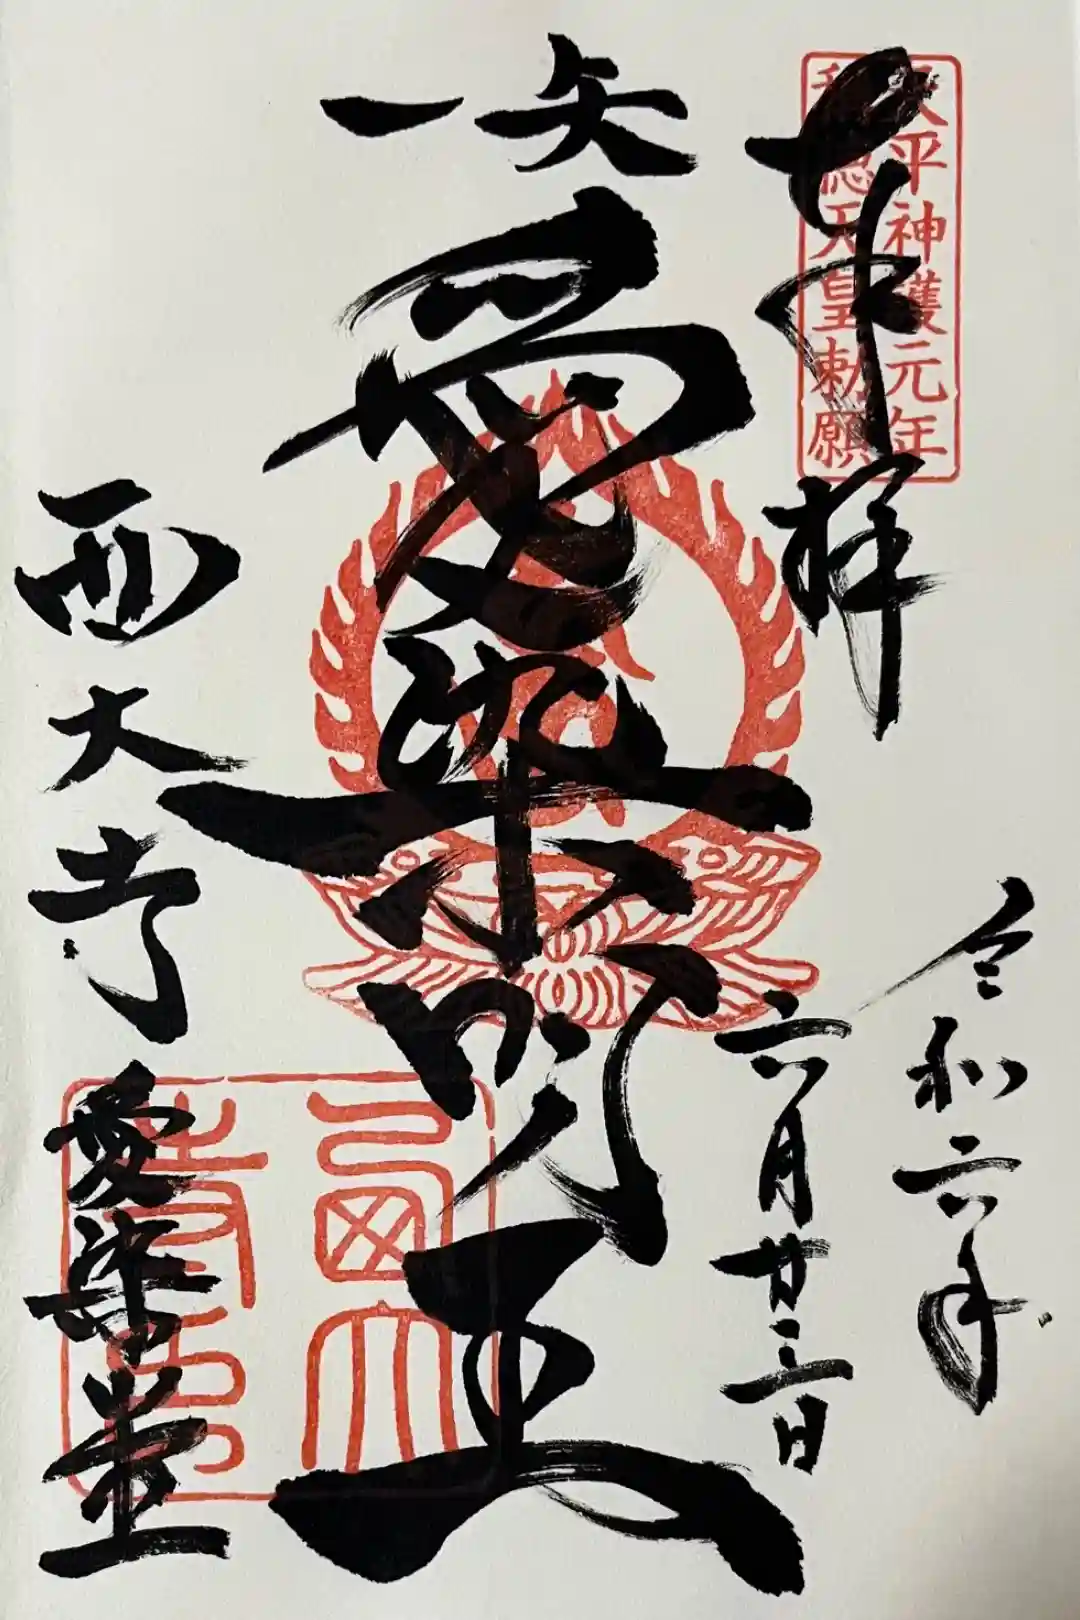 奉拝
天平神護元年
称徳天皇勅願
令和六年
六月廿三日
一矢
愛染明王
西大寺 愛染堂
西大
寺印